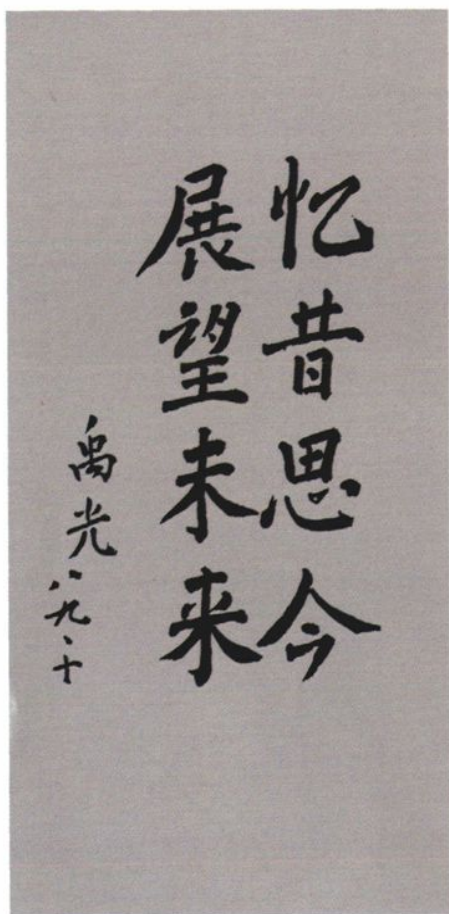 忆昔思今
展望未来
禹光
八九、十